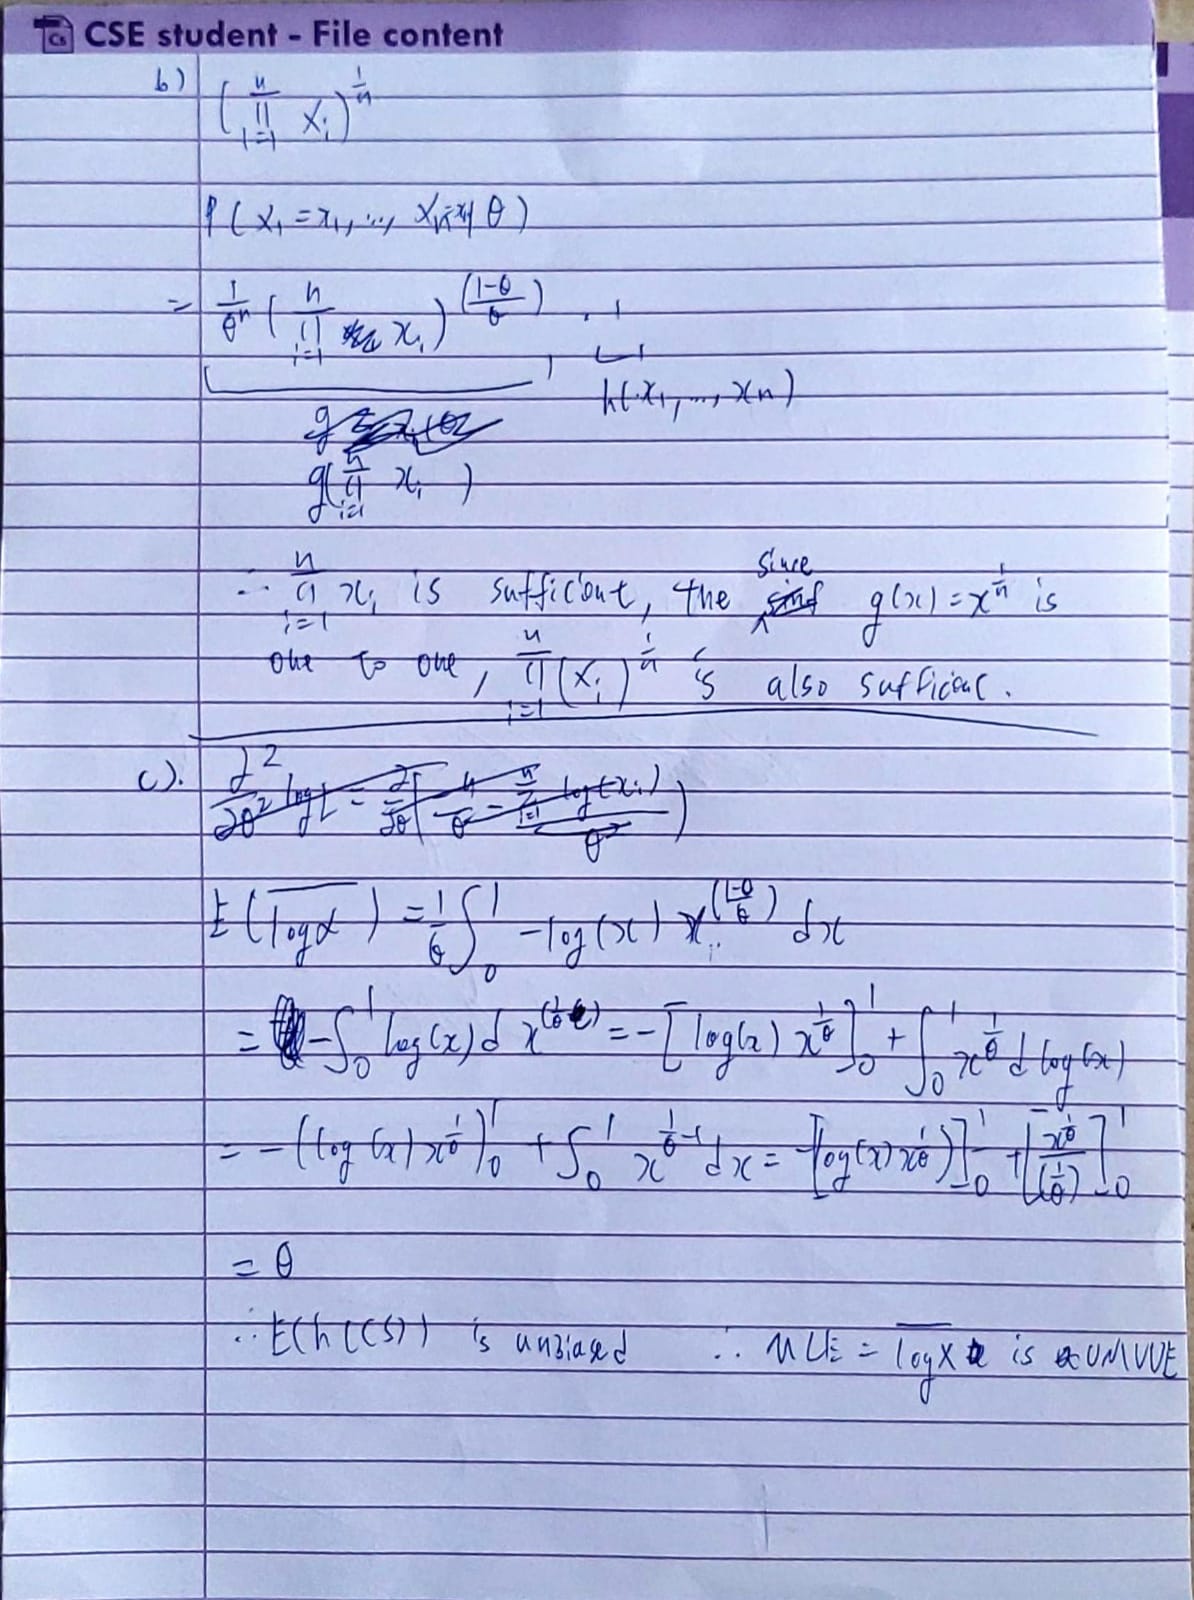 CSE student - File content
b) (∏_{i=1}^{n} X_i)^{1/n}
P(X_1 = x_1, ..., X_n = x_n | θ)
= 1/θ^n (∏_{i=1}^{n} x_i)^{((1-θ)/θ)} · 1
h(x_1, ..., x_n)
g(∏_{i=1}^{n} x_i )
∴ ∏_{i=1}^{n} x_i is sufficient, the since g(x) = x^{1/n} is
one to one, ∏_{i=1}^{n} (X_i)^{1/n} is also sufficient.
c). ∂²/∂θ² log L = ∂/∂θ ( n/θ - ∑_{i=1}^{n} log(x_i)/θ )
E( \overline{log x} ) = 1/θ ∫_0^1 -log(x) x^{((1-θ)/θ)} dx
= -∫_0^1 log(x) d x^{(1/θ)} = -[log(x) x^{1/θ}]_0^1 + ∫_0^1 x^{1/θ} d log(x)
= -(log(x) x^{1/θ})_0^1 + ∫_0^1 x^{1/θ-1} dx = -[log(x) x^{1/θ})]_0^1 + [x^{1/θ}/(1/θ)]_0^1
= θ
∴ E(h(CS)) is unbiased ∴ MLE = \overline{log X} is UMVUE